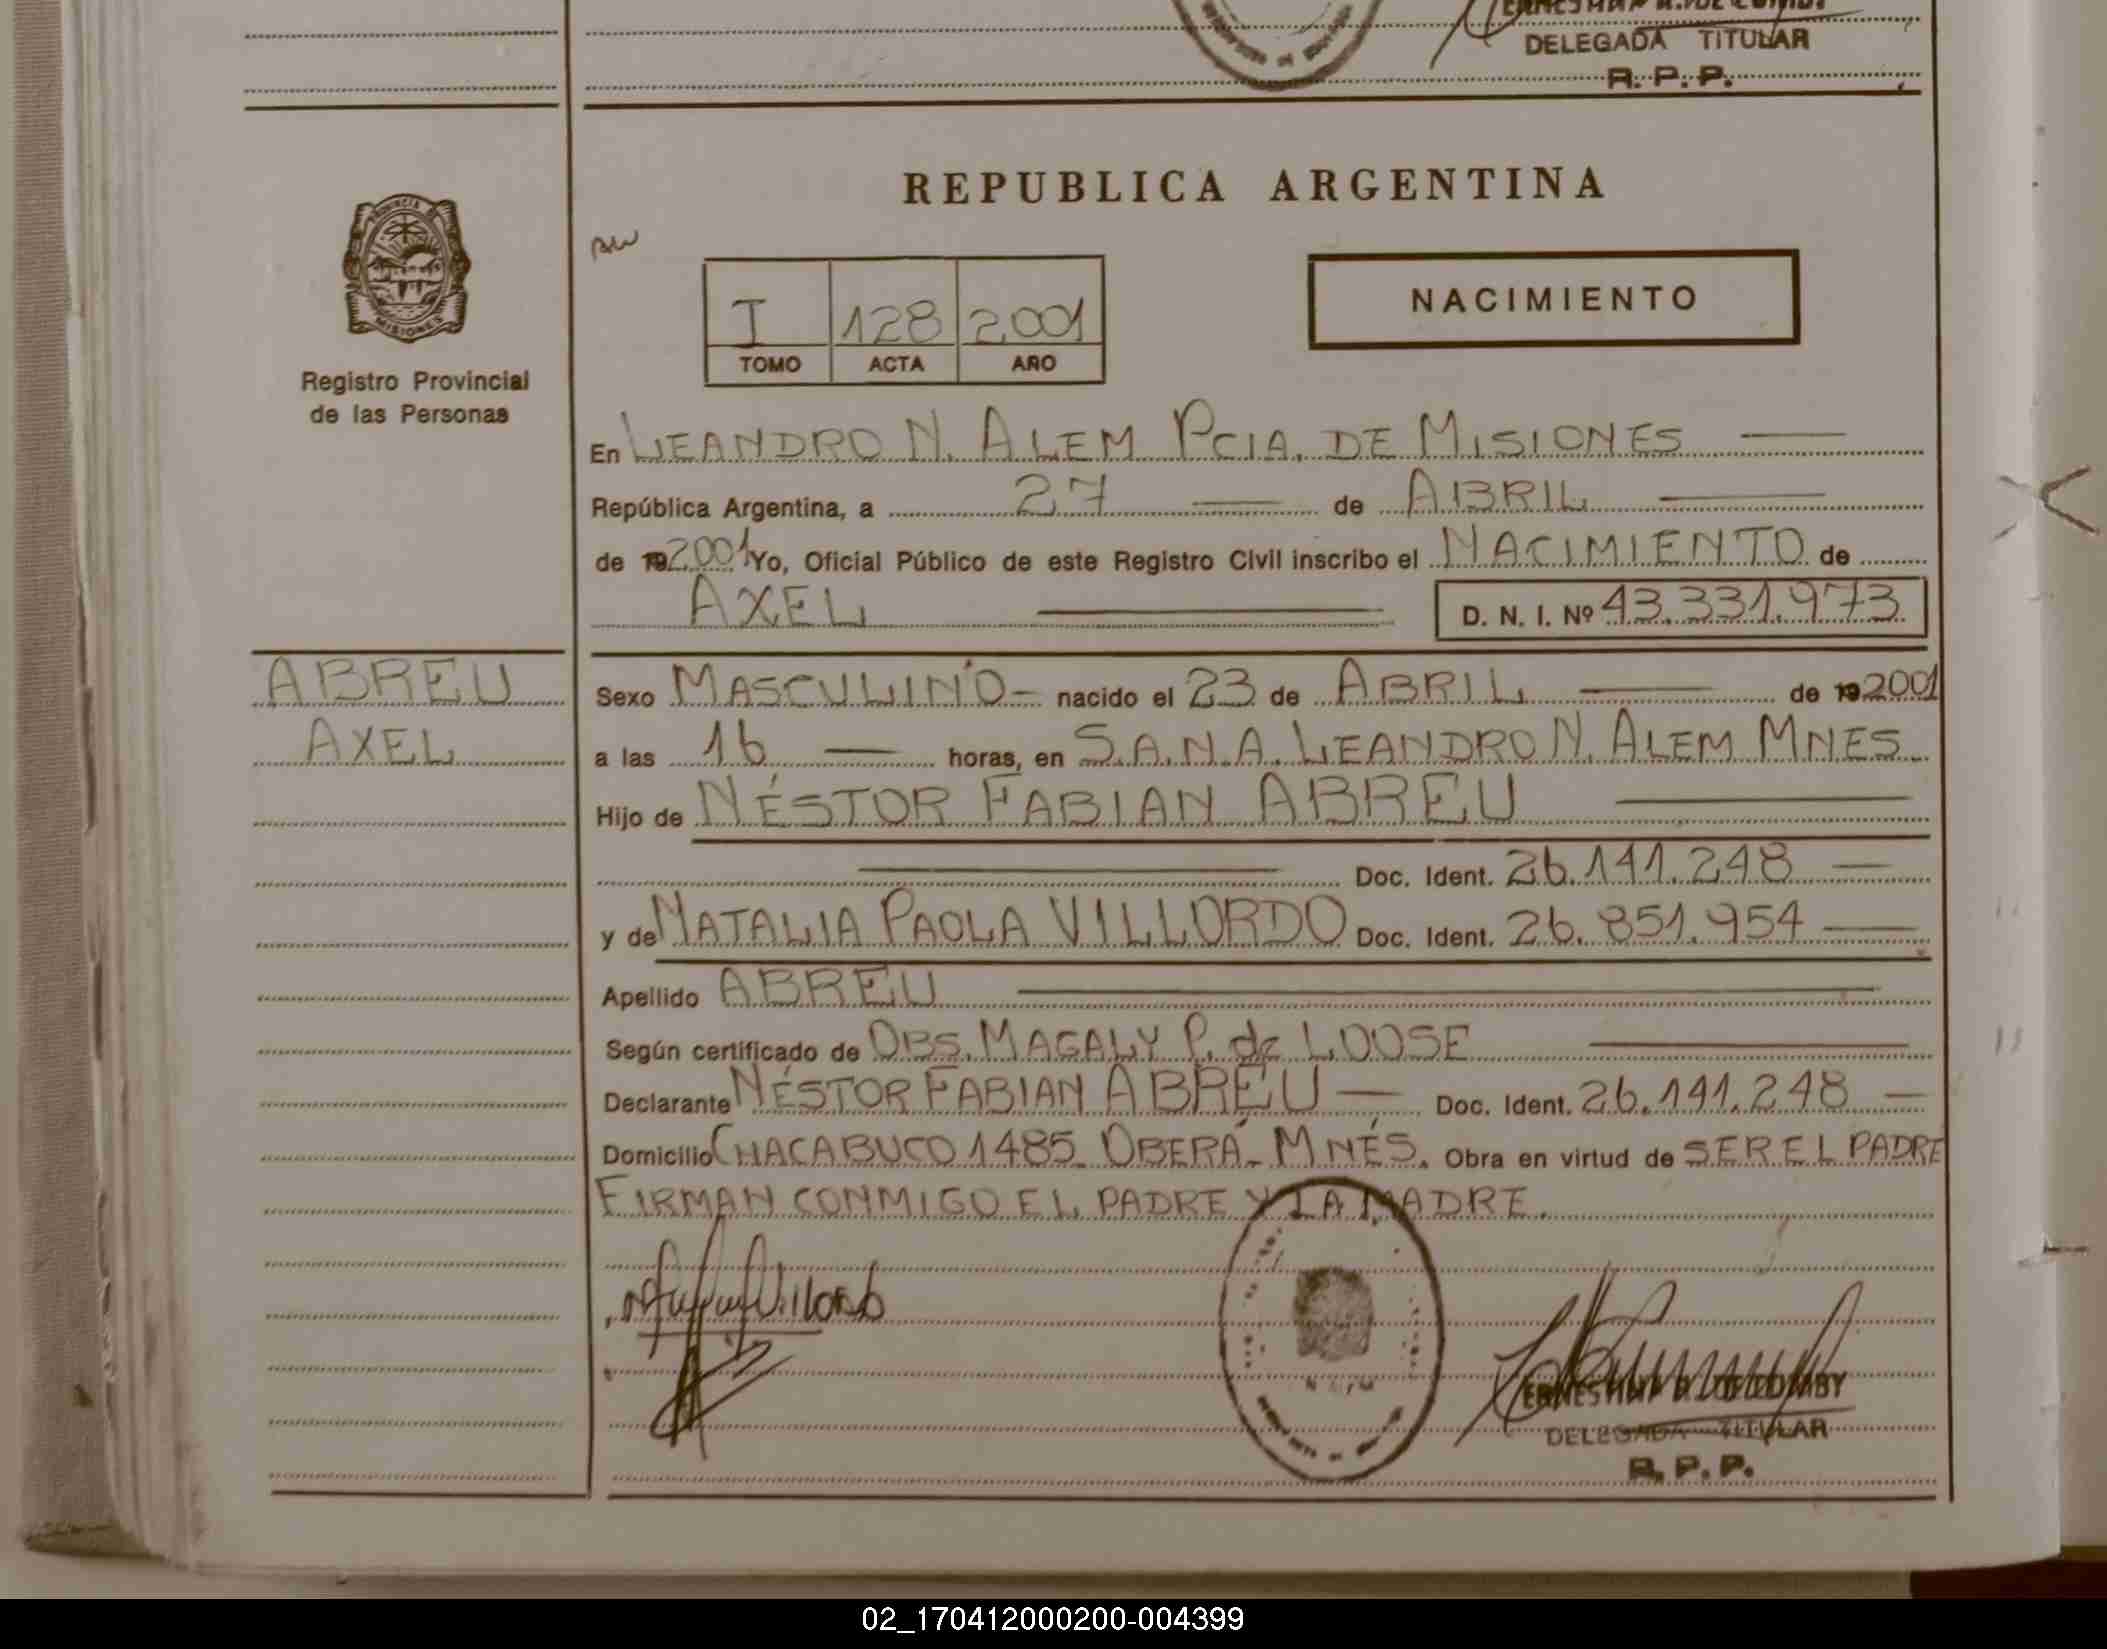 DELEGADA TITULAR
R. P. P.
PROVINCIA DE
MISIONES
Registro Provincial
de las Personas
REPUBLICA ARGENTINA
I 128 2001
TOMO ACTA AÑO
NACIMIENTO
En LEANDRO N. ALEM PCIA. DE MISIONES
República Argentina, a 27 de ABRIL
de 19 2001 Yo, Oficial Público de este Registro Civil inscribo el NACIMIENTO de
AXEL D. N. I. Nº 43.331.973
ABREU
AXEL
Sexo MASCULINO nacido el 23 de ABRIL de 19 2001
a las 16 horas, en S.A.N.A. LEANDRO N. ALEM MNES
Hijo de NÉSTOR FABIAN ABREU
Doc. Ident. 26.141.248
y de NATALIA PAOLA VILLORDO Doc. Ident. 26.851.954
Apellido ABREU
Según certificado de OBS. MAGALY P. de LOOSE
Declarante NÉSTOR FABIAN ABREU Doc. Ident. 26.141.248
Domicilio CHACABUCO 1485 OBERÁ - MNES. Obra en virtud de SER EL PADRE
FIRMAN CONMIGO EL PADRE Y LA MADRE.
DELEGADA TITULAR
R. P. P.
02_170412000200-004399